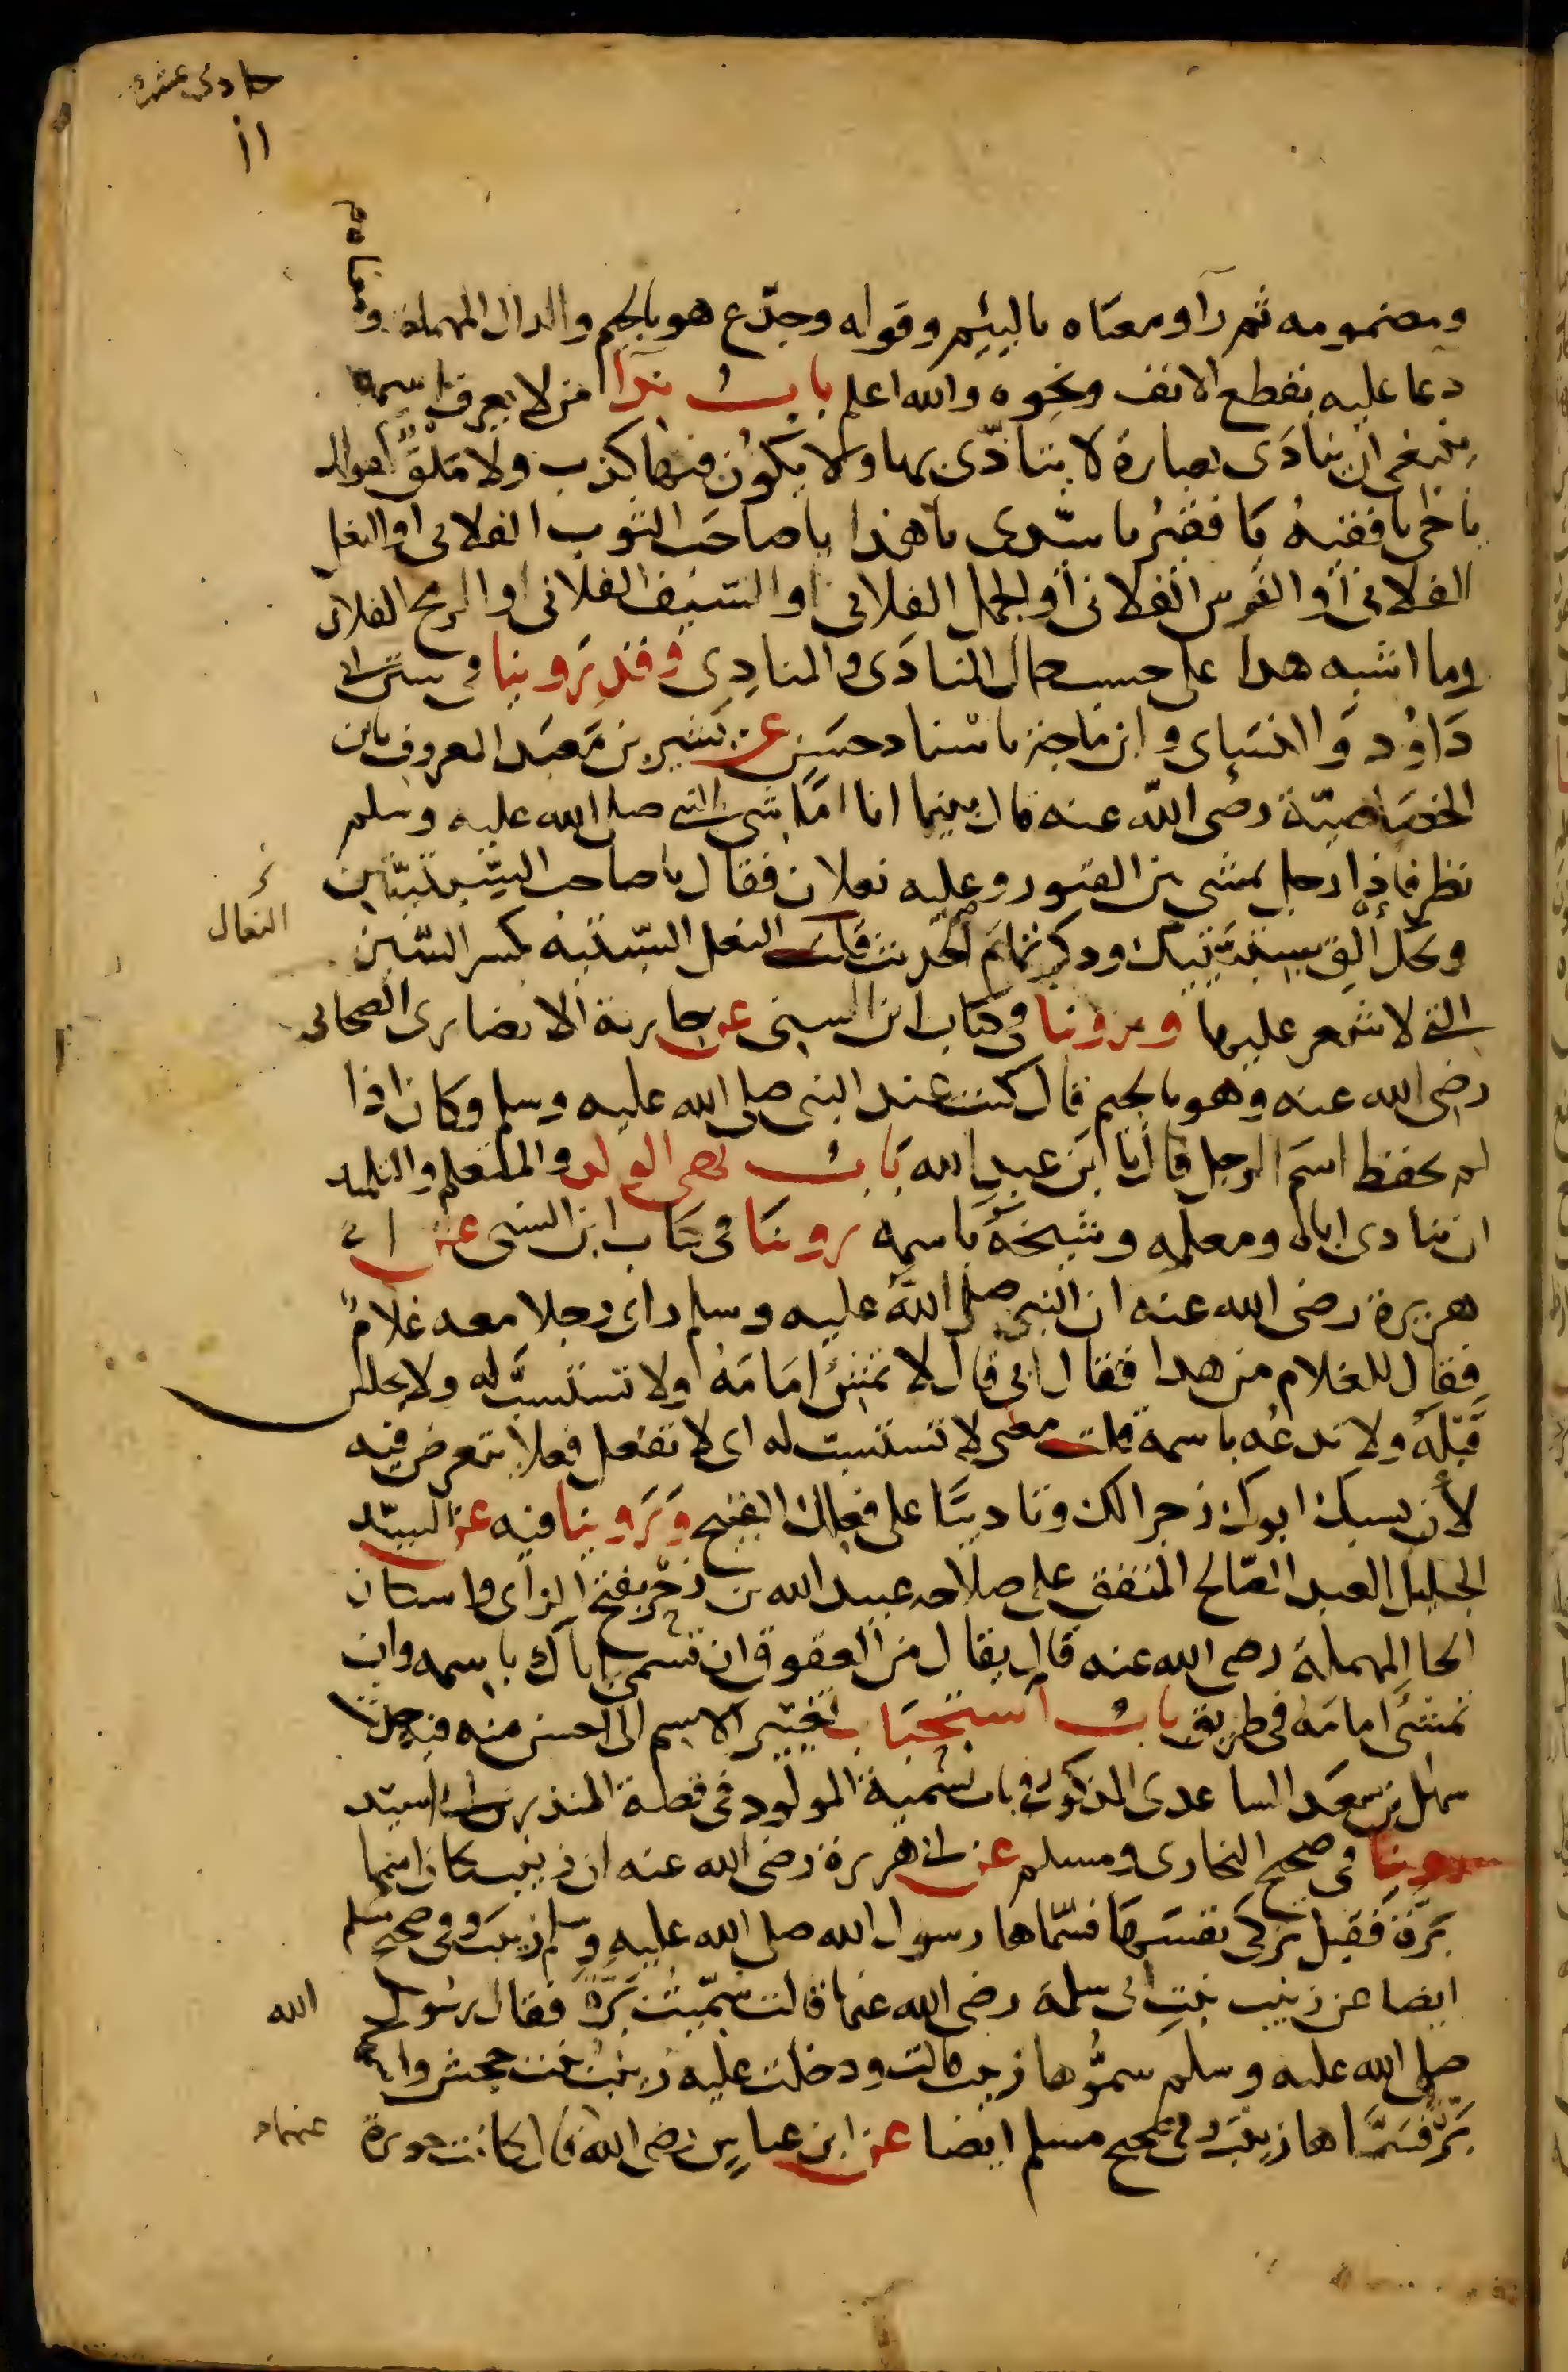 حادى عشره
١١
ومضمومه ثم راء ومعناه يا لئيم وقوله وجدّع هو بالجيم والدال المهملة ومعناه
دعا عليه بقطع الانف ونحوه والله اعلم باب ندا من لا يعرف اسمه
ينبغى ان ينادَى بعبارة لا يتأذّى بها ولا يكون فيها كذب ولا مَلَقٌ كقولك
يا اخى يا فقيهُ يَا فقيرُ يا سيّدى يا هذا يا صاحبَ الثوب الفلانى او النعل
الفلانى او الفرس الفلانى او الجمل الفلانى او السَّيف الفلانى او الرمح الفلانى
وما اشبه هذا على حسب حال المنادَى والمنادِى وقد رَوينا فى سنن ابى
دَاوُد وَالنسَاى وابن ماجة باسْناد حسَن عن بَشير بن مَعْبَد المعروف بابن
الخصَاصيّة رضى الله عنه قال بينما انا اماشى النبى صلى الله عليه وسلم
نظر فاذا رجل يمشى بين القبور وعليه نعلان فقال يا صاحب السِّبتيّتين
ويحك ألق سبتيّتيك وذكر تمام الحديث قلت النعال السّبتيه بكسر السّين
النعال
التى لا شعر عليها وروينا فى كتاب ابن السنى عن جارية الانصارى الصحابى
رضى الله عنه وهو بالجيم قال كنت عند النبى صلى الله عليه وسلم وكان اذا
لم يحفظ اسمَ الرجل قال يا ابنَ عبد الله بَابُ نهى الولد والمتعلم والتلميذ
ان ينادى اباه ومعلمه وشيخَهُ باسمه روينَا فى كتاب ابن السنى عن ابى
هريرة رضى الله عنه ان النبى صلى الله عليه وسلم راى رجلا معه غلامٌ
فقال للغلام من هذا فقال ابى قال لا تمشِ امَامَهُ ولا تستسبَّ له ولا تجلس
قَبْلَهُ ولا تدعُه باسمه قلت معنى لا تستسبّ له اى لا تفعل فعلا يتعرض فيه
لأن يسبك ابوك زجرا لك وتاديبًا على فعلك القبيح وَرَوينا فيه عن السيّد
الجليل العبد الصّالح المتفق على صلاحه عبيد الله بن زَحْر بفتح الزاى واسكان
الحا المهملة رضى الله عنه قال يقال من العقوق ان تسمىَ اباك باسمه وان
تمشىَ امامَهُ فى طريق بابُ استحبَاب تغيير الاسم الى احسن منه فيه حديث
سهل بن سعد الساعدى المذكور فى باب تسمية المولود فى قصة المنذر بن ابى اسيد
روينا فى صحيح البخارى ومسلم عن ابى هريرة رضى الله عنه ان زينب كان اسمها
بَرَّةَ فقيل تزكى نفسَهَا فسمّاها رسول الله صلى الله عليه وسلم زينبَ وفى صحيح مسلم
ايضا عن زينب بنتِ ابى سلمة رضى الله عنها قالت سُمِّيتُ بَرَّة فقال رسول الله
صلى الله عليه وسلم سمُّوها زينب قالت ودخلت عليه زينبُ بنت جحش واسمها
بَرَّةُ فسَمَّاها زينبَ وفى صحيح مسلم ايضا عن ابن عباس رضى الله قال كانت جويرية
عنهما